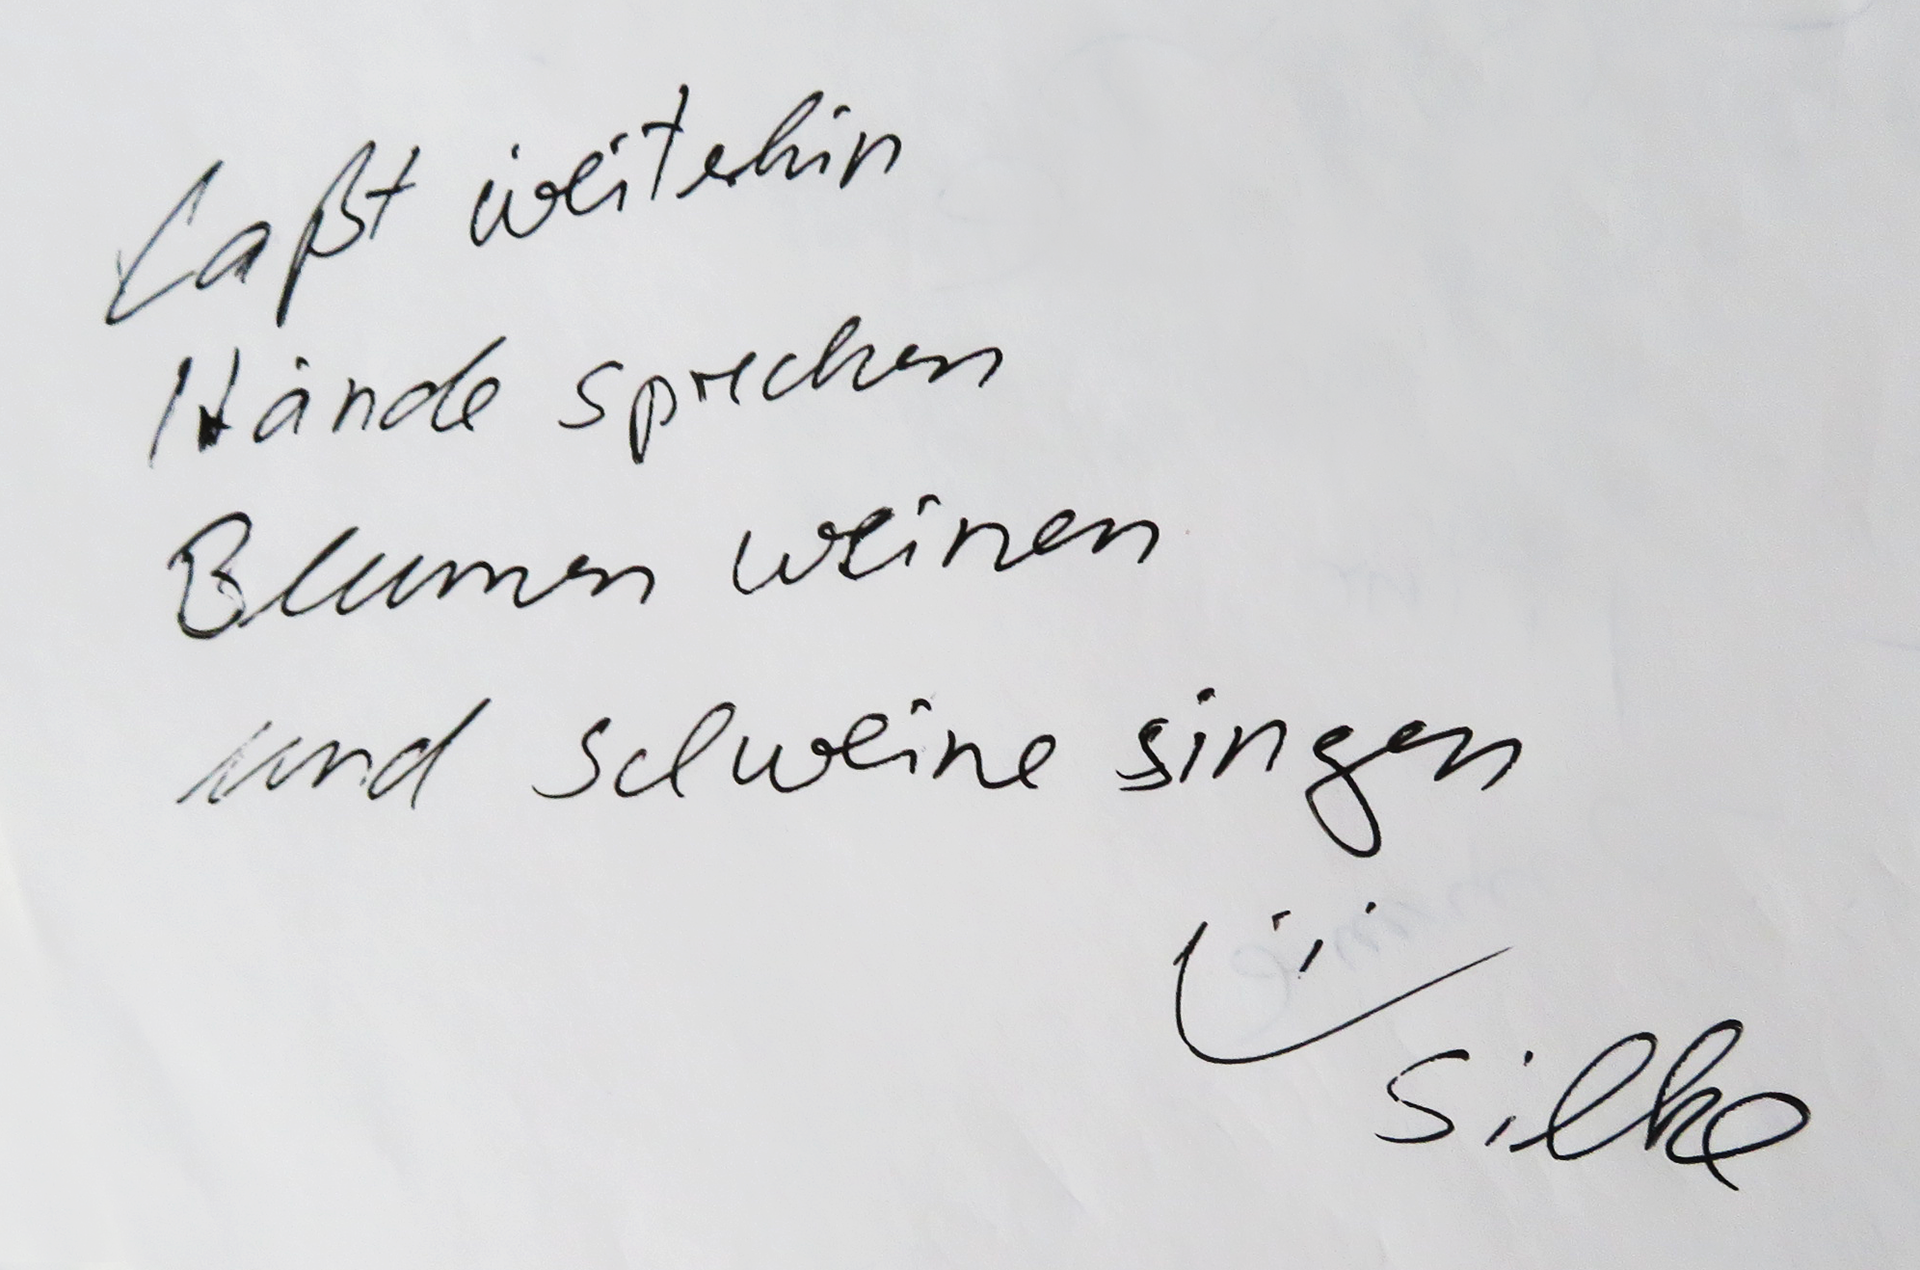 Laßt weiterhin
Hände sprechen
Blumen weinen
und Schweine singen
Silke